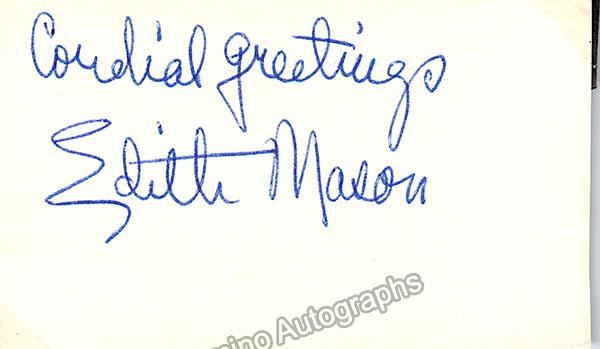 Cordial greetings
Edith Mason
Autographs